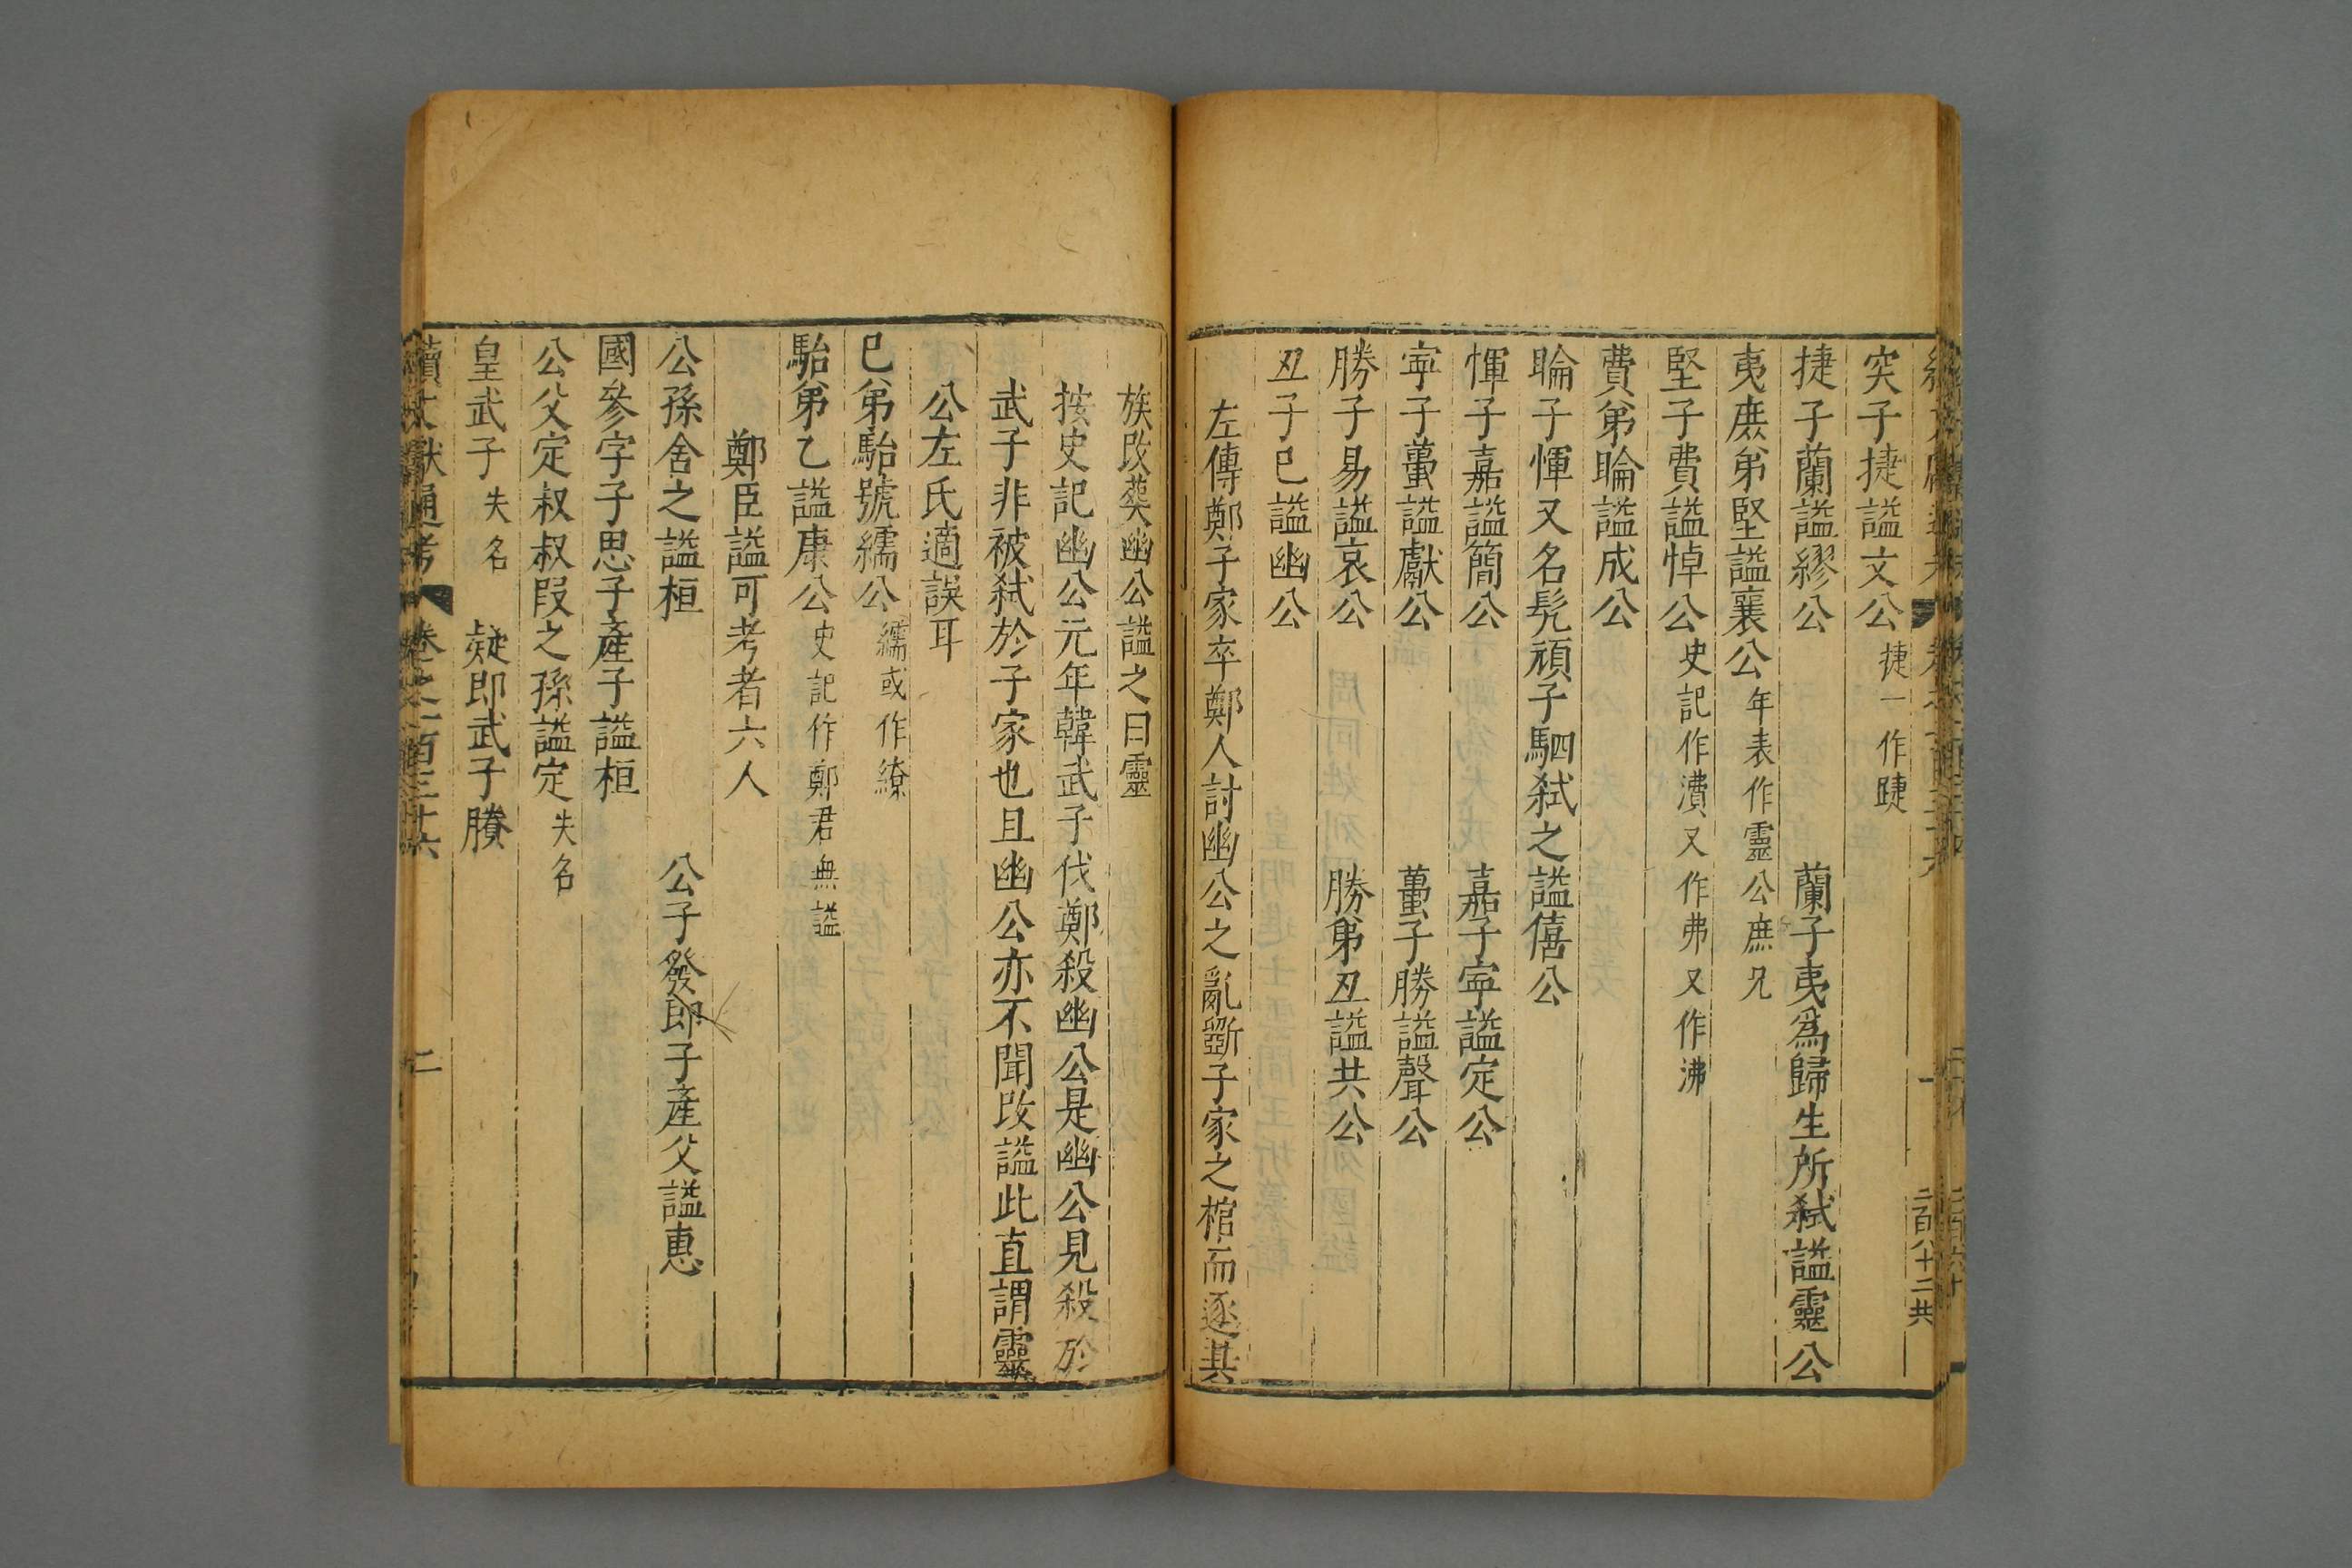 突子捷謚文公捷一作踕
捷子蘭謚繆公 蘭子夷爲歸生所弑謚靈公
夷庶弟堅謚襄公年表作靈公庶兄
堅子費謚悼公史記作濆又作弗又作沸
費弟睔謚成公
睔子惲又名髠頑子駟弑之謚僖公
惲子嘉謚簡公 嘉子寧謚定公
寧子蠆謚獻公 蠆子勝謚聲公
勝子易謚哀公 勝弟丑謚共公
丑子巳謚幽公
左傳鄭子家卒鄭人討幽公之亂斵子家之棺而逐其
族改葬幽公謚之曰靈
按史記幽公元年韓武子伐鄭殺幽公是幽公見殺於
武子非被弑於子家也且幽公亦不聞改謚此直謂靈
公左氏適誤耳
巳弟駘號繻公繻或作繚
駘弟乙謚康公史記作鄭君無謚
鄭臣謚可考者六人
公孫舍之謚桓 公子發即子產父謚惠
國參字子思子產子謚桓
公父定叔叔段之孫謚定失名
皇武子失名 疑即武子賸
續文獻通考 卷之一百三十六 二